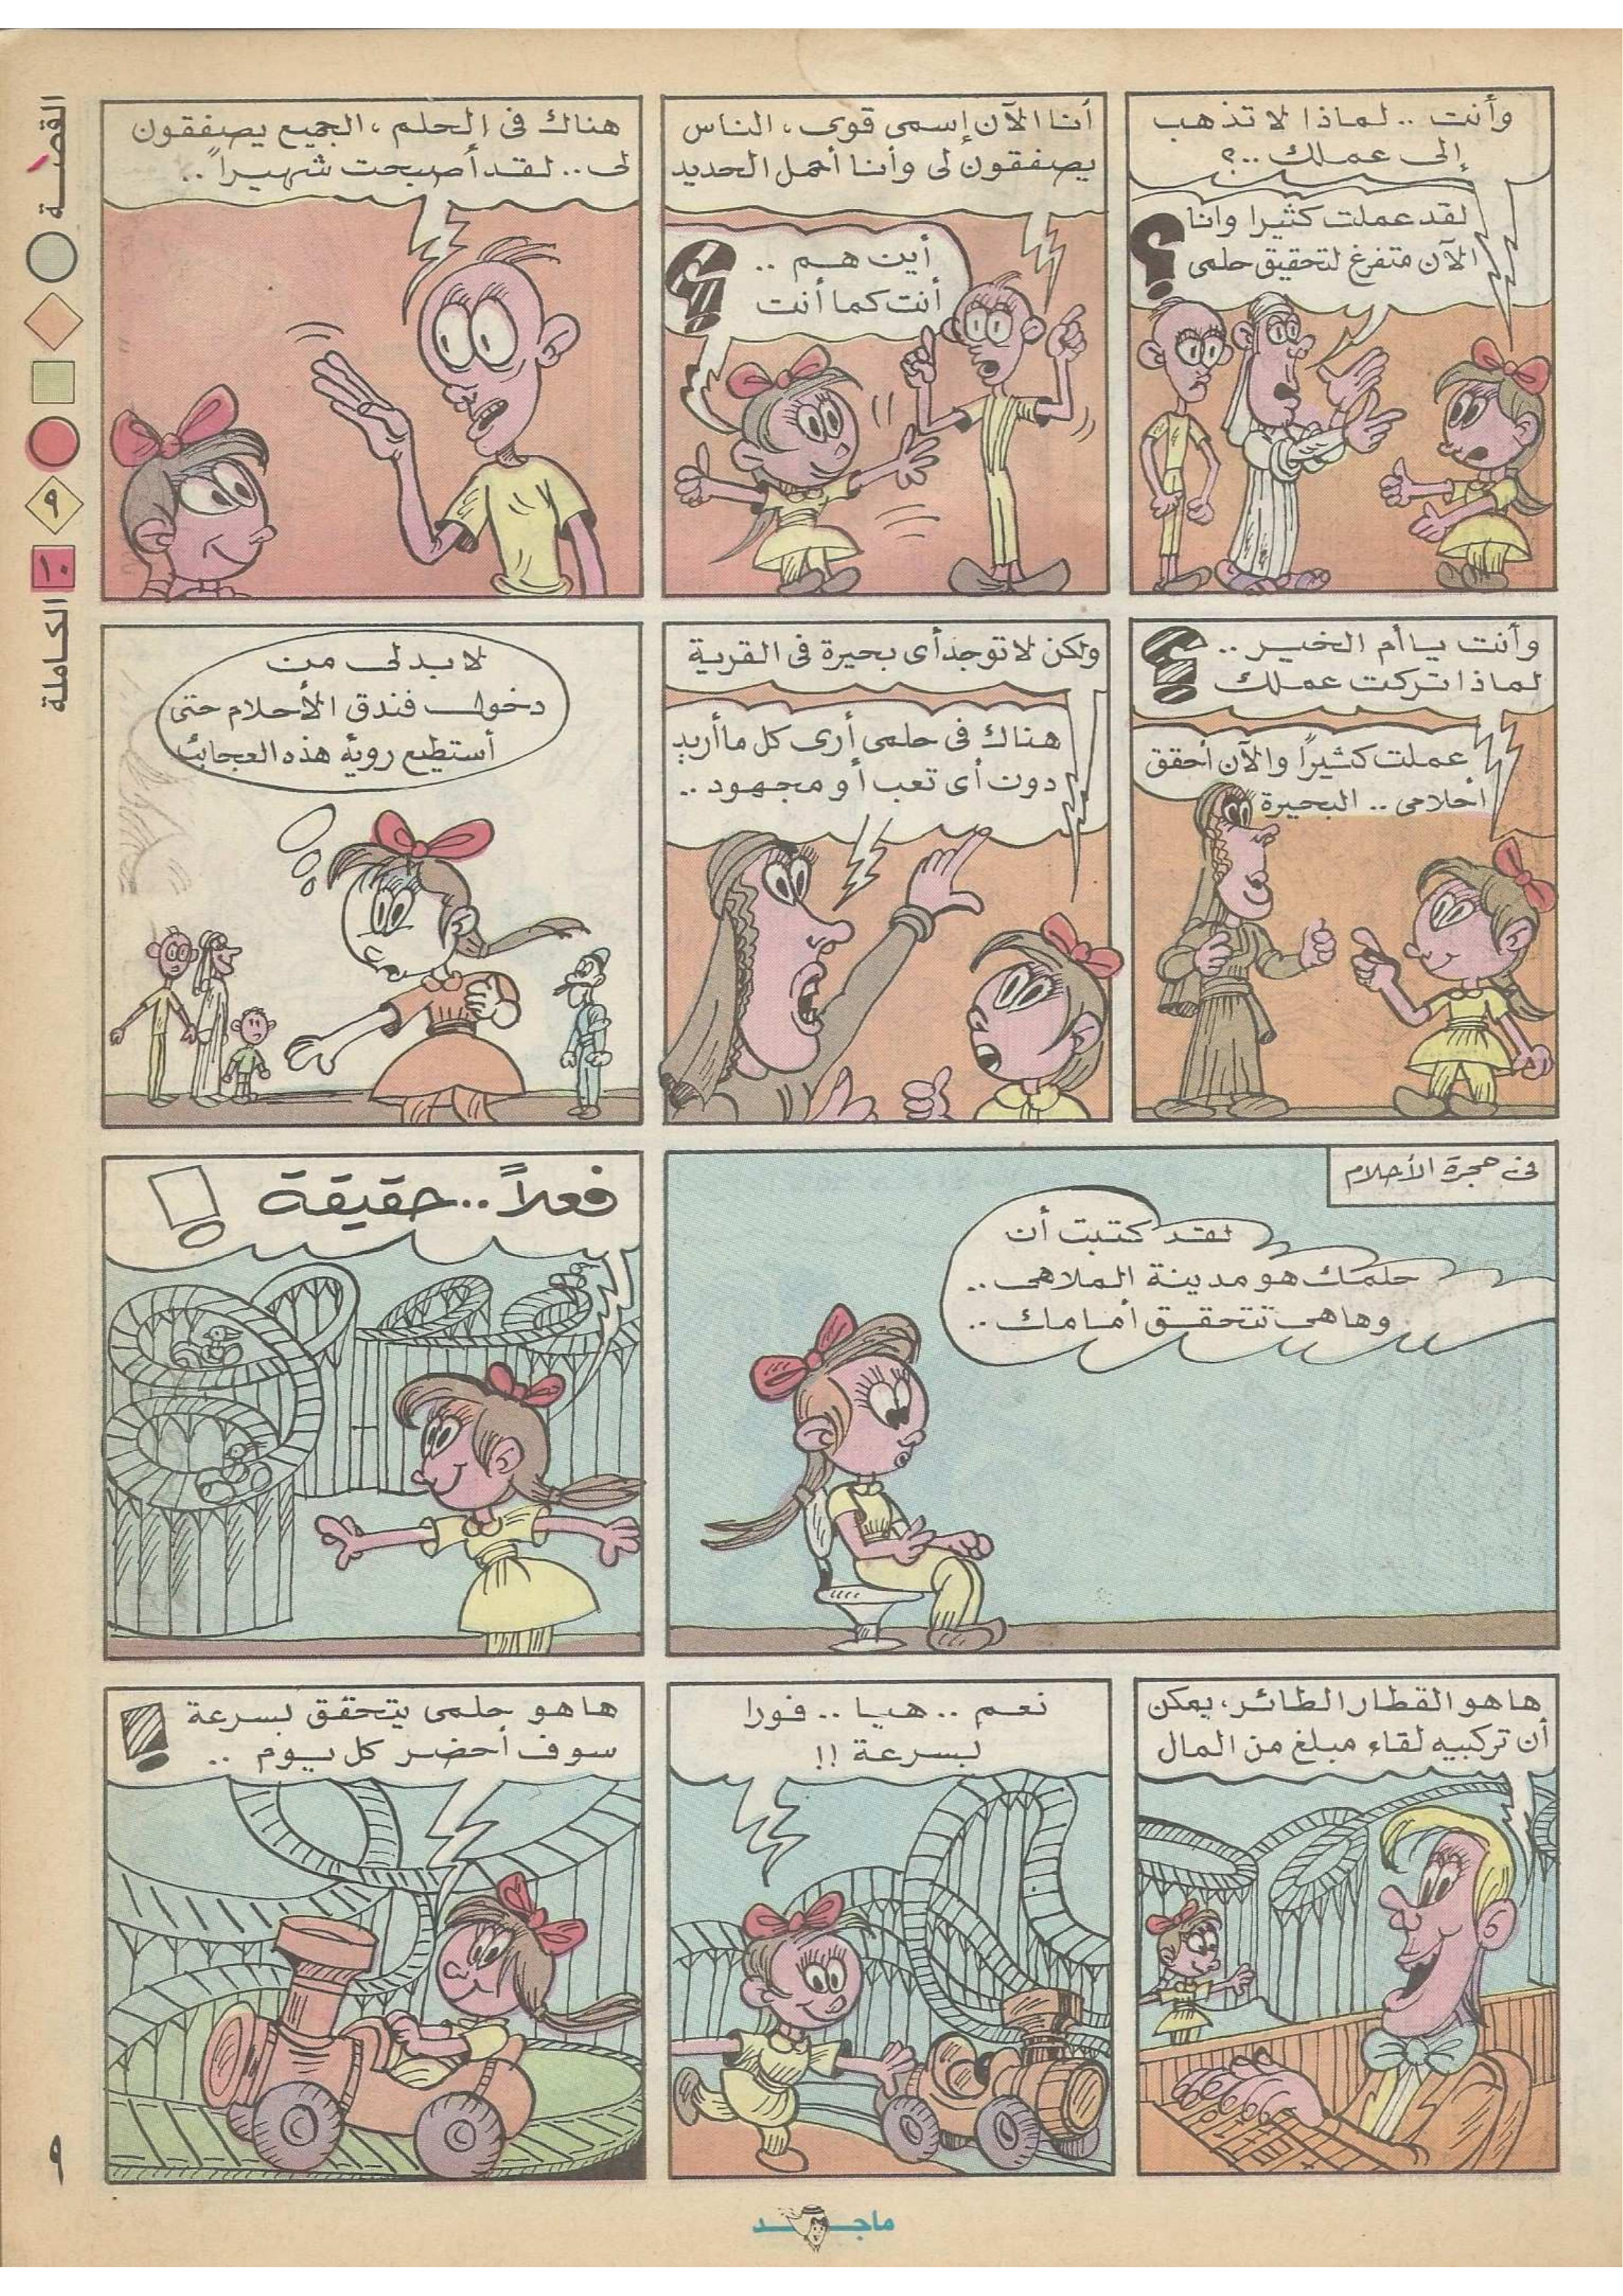 وأنت .. لماذا لا تذهب
إلى عملك ..؟
لقد عملت كثيرا وانا
الآن متفرغ لتحقيق حلمى
؟
أنا الآن إسمى قوى، الناس
يصفقون لى وأنا أحمل الحديد
أين هم ..
أنت كما أنت
؟!
هناك فى الحلم، الجميع يصفقون
لى.. لقد أصبحت شهيراً ..
وأنت يا أم الخير ..
لماذا تركت عملك
؟!
عملت كثيراً والآن أحقق
أحلامى .. البحيرة
ولكن لا توجد أى بحيرة فى القرية
هناك فى حلمى أرى كل ما أريد
دون أى تعب أو مجهود ..
لا بد لى من
دخول فندق الأحلام حتى
أستطيع رؤية هذه العجائب
فى حجرة الأحلام
لقد كتبت أن
حلمك هو مدينة الملاهى ..
وهاهى تتحقق أمامك ..
فعلاً .. حقيقة !
هاهو القطار الطائر، يمكن
أن تركبيه لقاء مبلغ من المال
نعم .. هيا .. فورا
بسرعة !!
هاهو حلمى يتحقق بسرعة
سوف أحضر كل يوم ..
!
القصة
٩
١٠
الكاملة
٩
ماجد